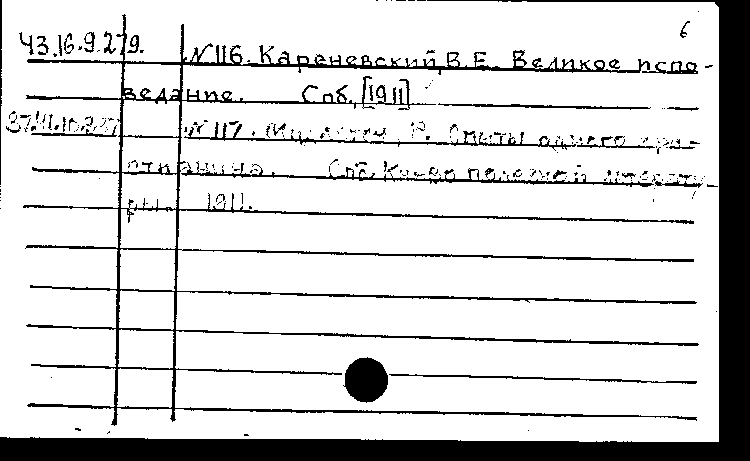 6
43.16.9.279. №116. Караневский, В.Е. Великое испо-
ведание. Спб, [1911]
37.41.10.337 №117. Р. Опыты одного хри-
стианина. Спб. Кн-во полезной литерату
ры. 1911.